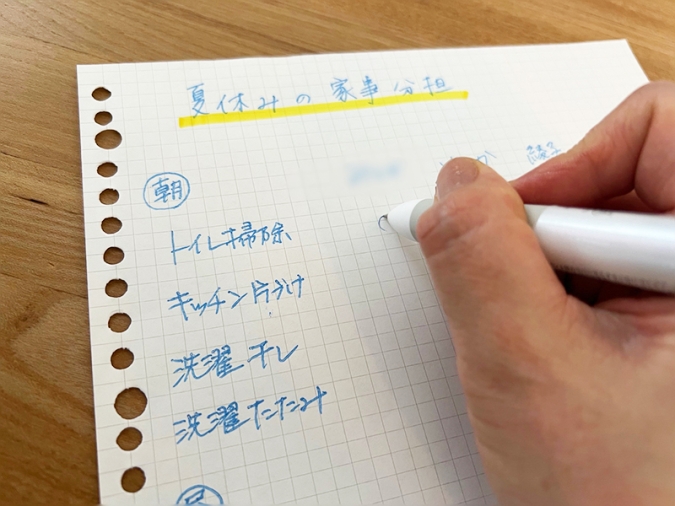 夏休みの家事分担
朝
トイレ掃除
キッチン片づけ
洗濯干し
洗濯たたみ